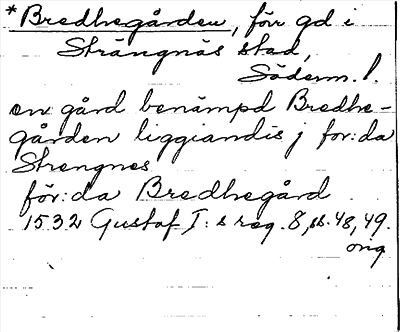 *Bredhegården, förr gd i
Strängnäs stad,
Söderm. l.
en gård benämpd Bredhe-
gården liggiandis j for:da
Strengnes
för:da Bredhegård
1532 Gustaf I:s reg. 8, ss. 48, 49.
orig